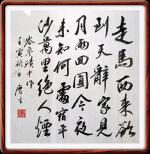 走馬西來欲
到天辭家見
月兩回圓今夜
未知何處宿平
沙萬里絕人煙
岑參磧中作
壬寅